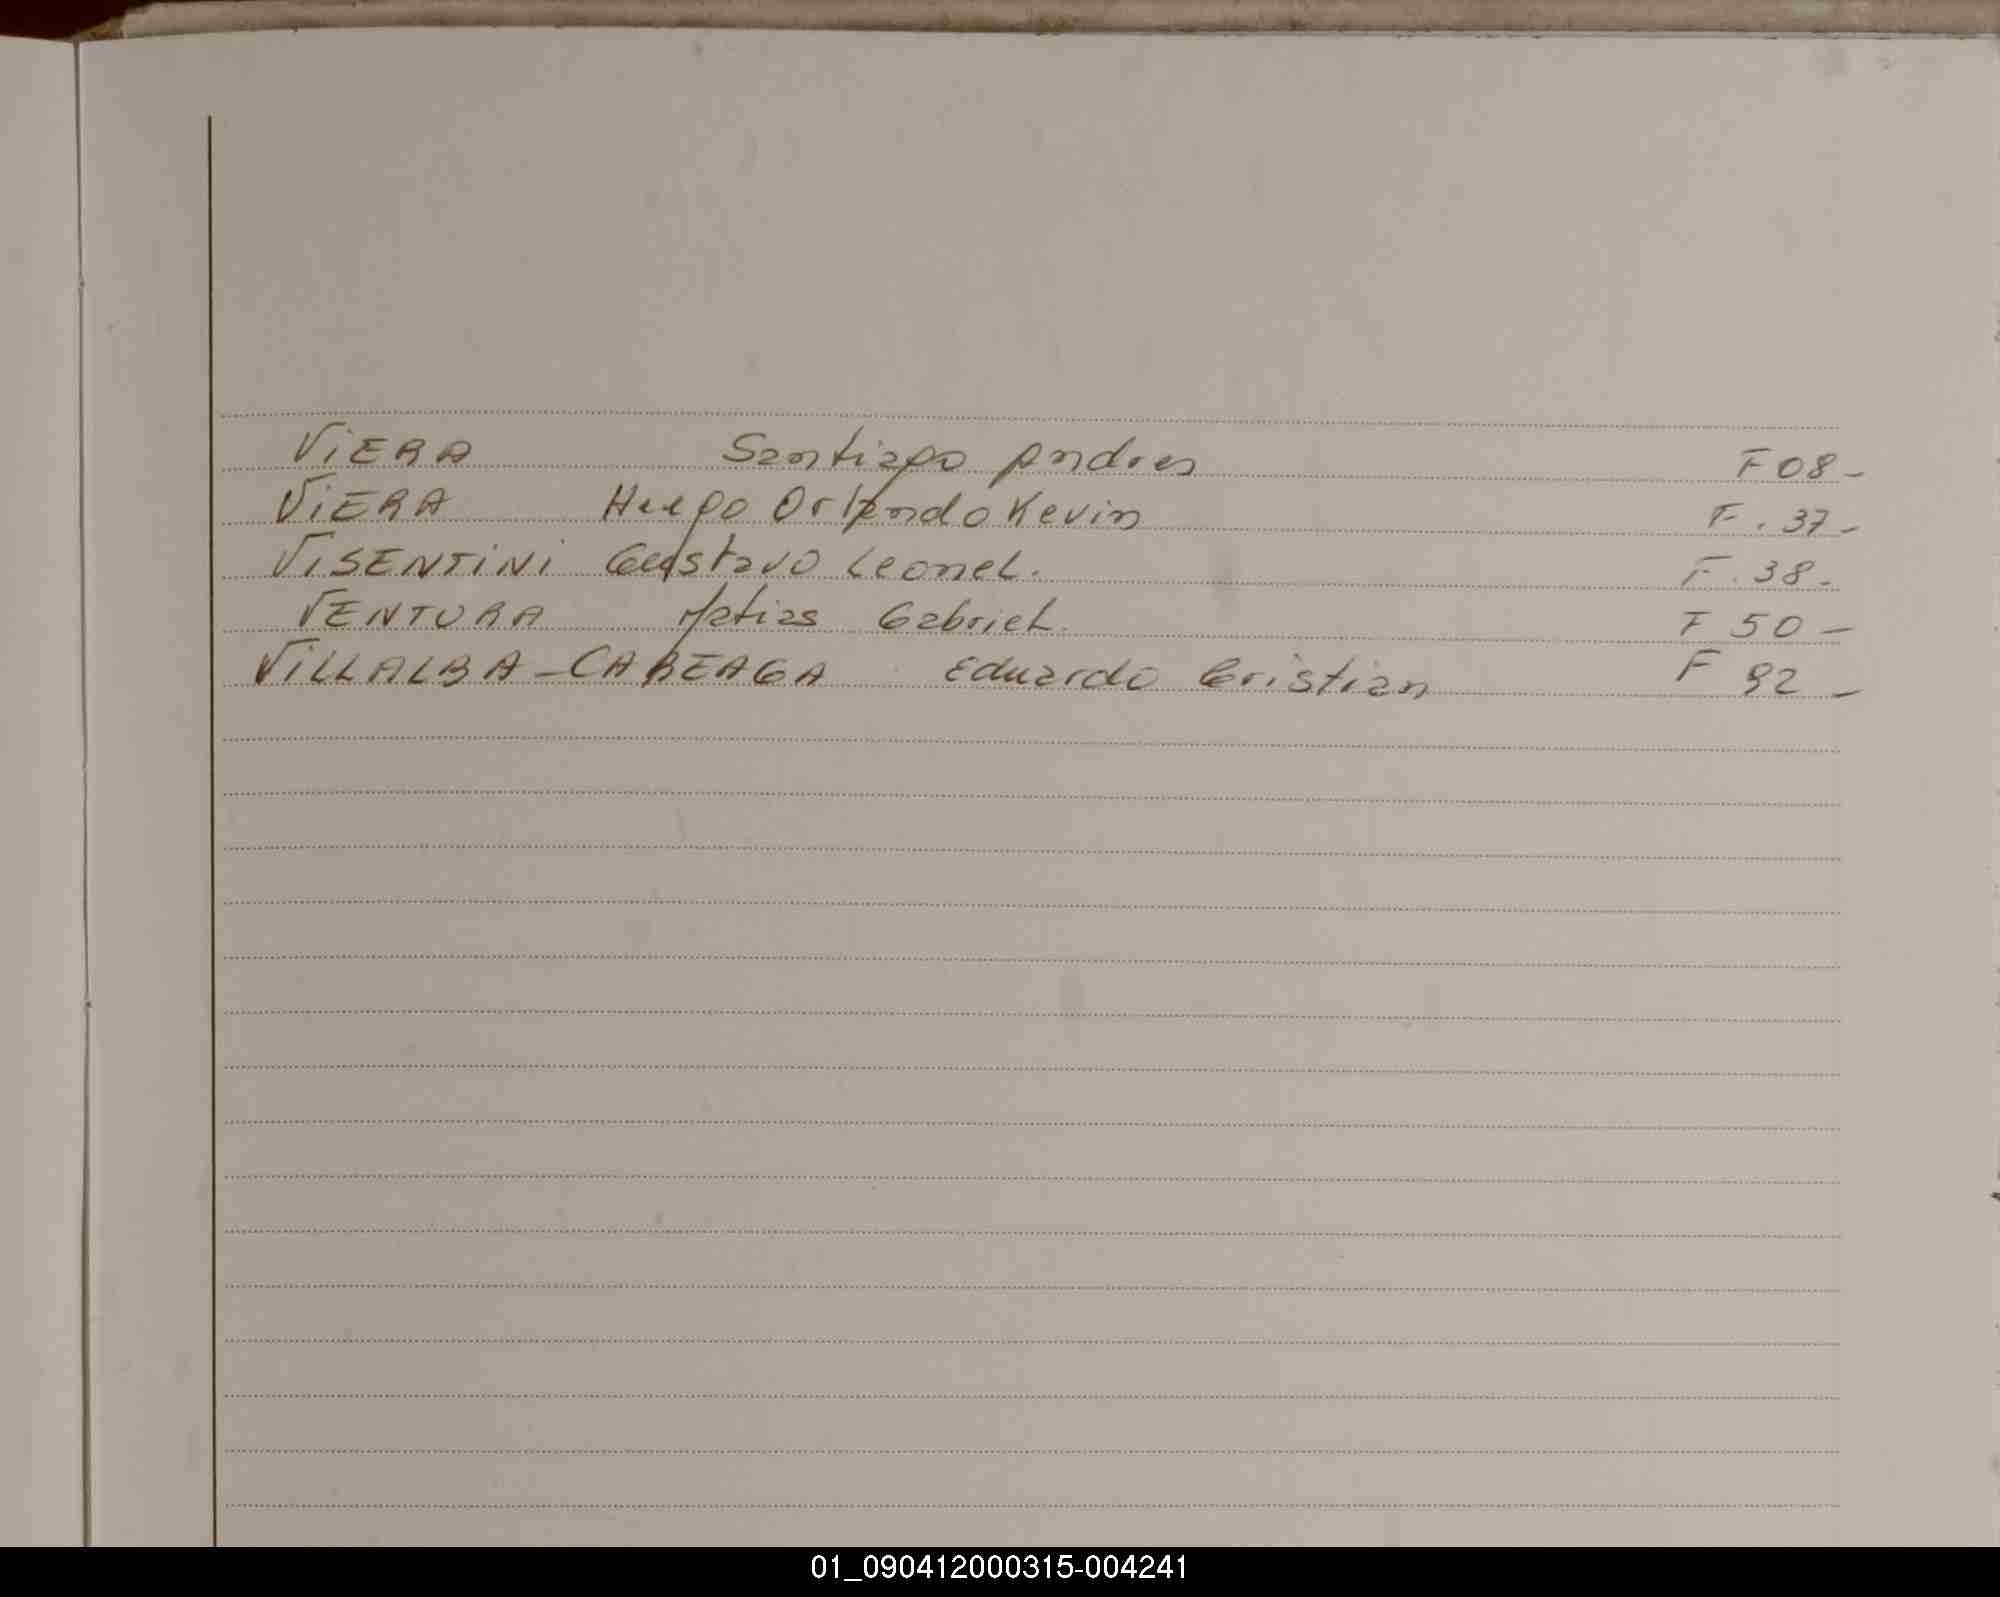 VIERA Santiago Andres F 08 -
VIERA Hugo Orlando Kevin F. 37 -
VISENTINI Gustavo Leonel. F. 38 -
VENTURA Matias Gabriel. F 50 -
VILLALBA - CAREAGA Eduardo Cristian F 92 -
01_090412000315-004241